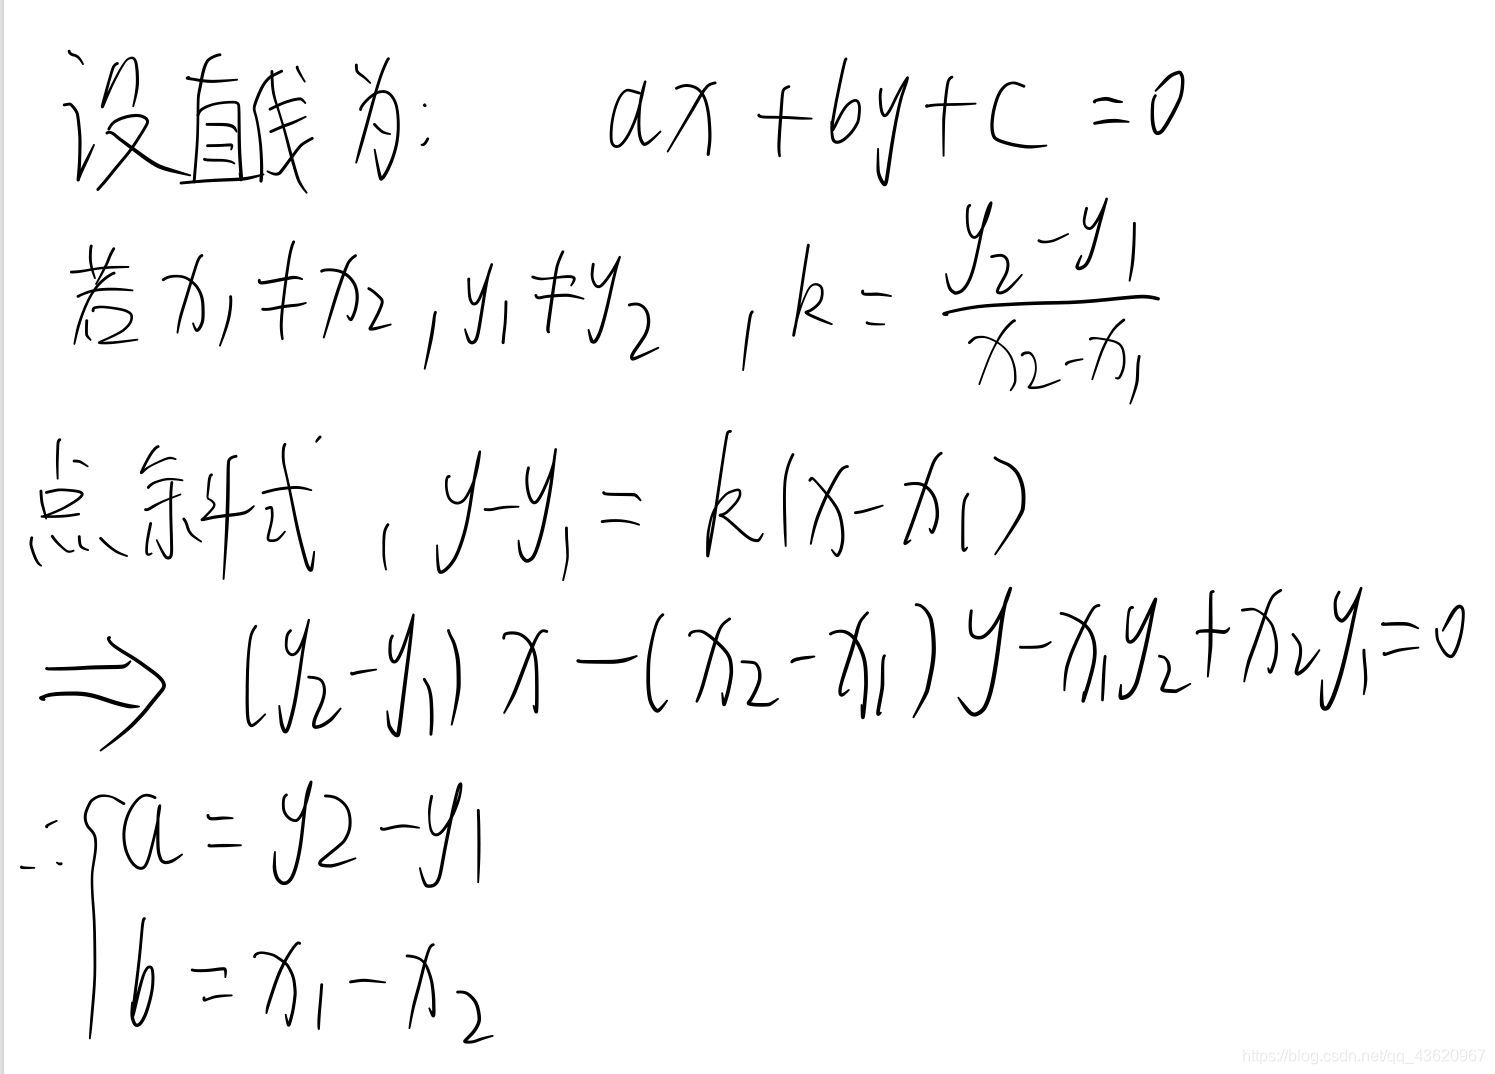 设直线为: ax+by+c=0
若x₁≠x₂,y₁≠y₂,k=(y₂-y₁)/(x₂-x₁)
点斜式,y-y₁=k(x-x₁)
⇒(y₂-y₁)x-(x₂-x₁)y-x₁y₂+x₂y₁=0
∴{a=y2-y₁
b=x₁-x₂
https://blog.csdn.net/qq_43620967